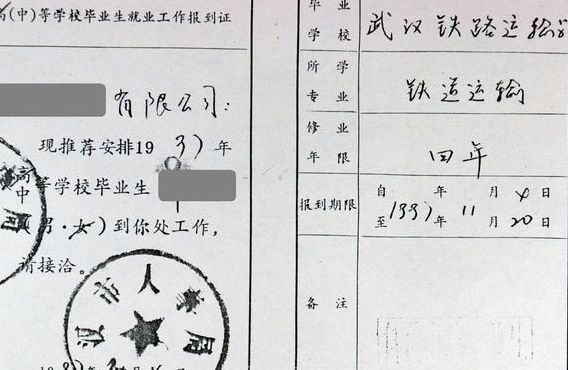 高(中)等学校毕业生就业工作报到证
有限公司:
现推荐安排19 97年
高
中
等学校毕业生
男·女)到你处工作,
请接洽。
汉市人事局
毕业
学校
武汉铁路运输学
所学
专业
铁道运输
修业
年限
四年
报到期限
自 年 月 日
至1997年11月20日
备注